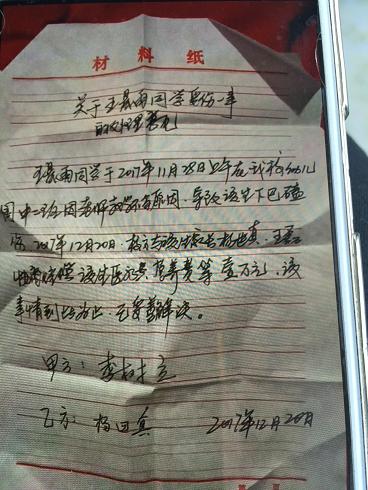 材料纸
关于王景雨同学受伤一事
的处理意见
王景雨同学于2017年11月28日上午在我校幼儿
园中二班因老师教学不当原因，导致该生下巴磕
伤 2017年12月20日，校方与该生家长杨思真、王
赔偿该生医药费 营养费等壹万元，该
事情到此为止，已妥善解决。
甲方：李树
乙方：杨思真 2017年12月20日